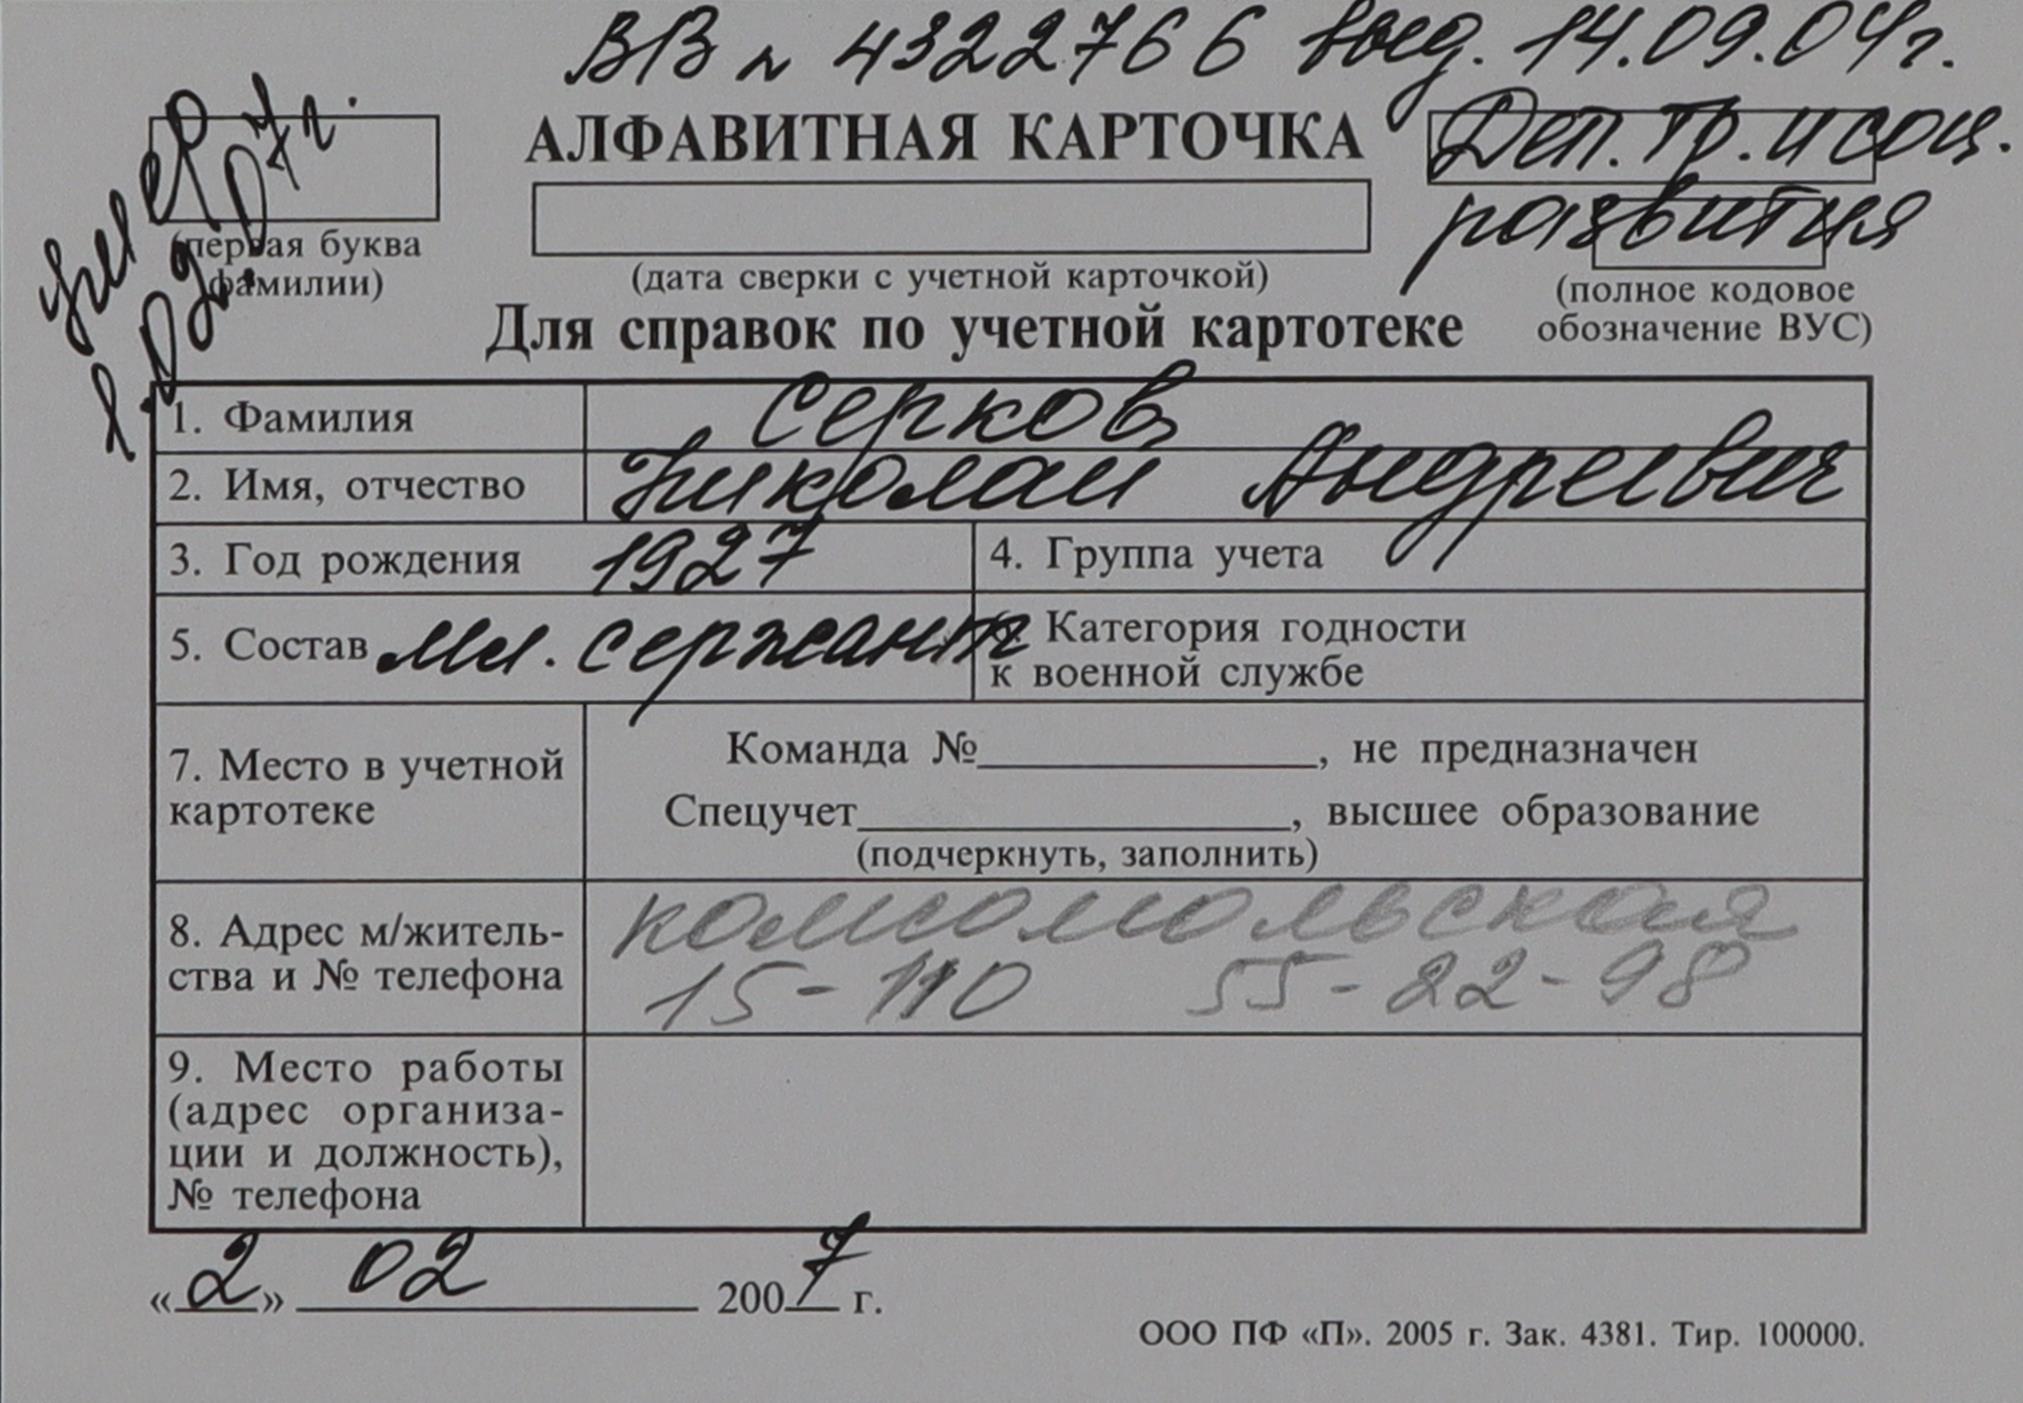 ВВ № 4322766 выд. 14.09.04г.
Деп. тр. и соц.
развития
умер
АЛФАВИТНАЯ КАРТОЧКА
(первая буква
фамилии)
(дата сверки с учетной карточкой)
(полное кодовое
обозначение ВУС)
Для справок по учетной картотеке
1. Фамилия Серков
2. Имя, отчество Николай Андреевич
3. Год рождения 1927 4. Группа учета
5. Состав мл. сержант 6. Категория годности
к военной службе
7. Место в учетной
картотеке
Команда №____________, не предназначен
Спецучет____________, высшее образование
(подчеркнуть, заполнить)
8. Адрес м/житель-
ства и № телефона
Комсомольская
15-110 55-22-98
9. Место работы
(адрес организа-
ции и должность),
№ телефона
«2» 02 2007 г.
ООО ПФ «П». 2005 г. Зак. 4381. Тир. 100000.